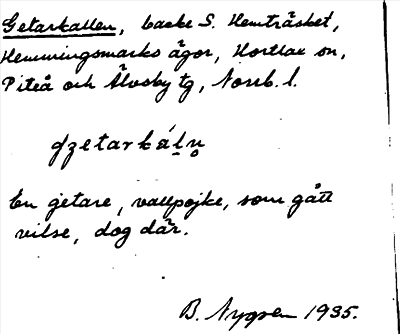 Getarkallen, backe S. Hemträsket,
Hemmingsmarks ägor, Hortlax sn,
Piteå och Älvsby tg, Norrb. l.
En getare, vallpojke, som gått
vilse, dog där.
B. Nygren 1935.